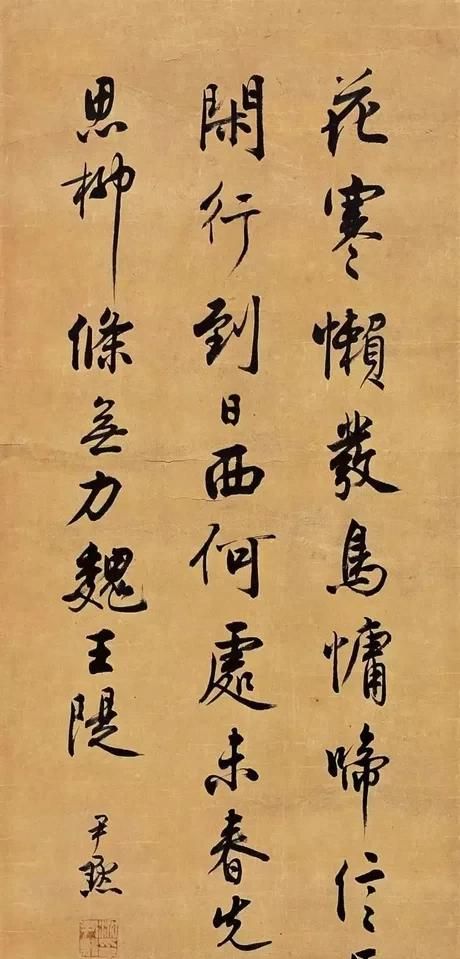 花寒懶發鳥慵啼信
閑行到日西何處未春先
思柳條無力魏王隄
尹默